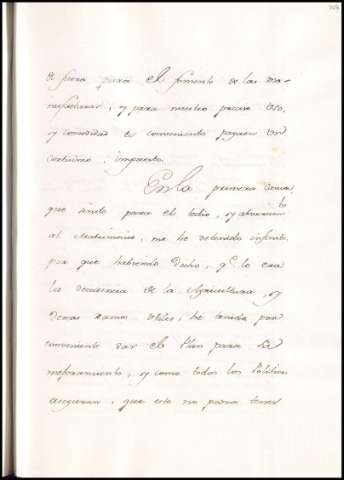 de fuera para el fomento de las ma-
nufacturas, y para nuestro preciso uso,
y comodidad es conveniente paguen un
cortisimo impuesto.
En la primera causa
que siento para el tedio, y aborrecimto
al Matrimonio, me he detenido infinito,
por que habiendo dicho, q.e lo era
la decadencia de la Agricultura, y
demas Ramos utiles, he tenido por
conveniente dar el Plan para su
mejoramiento, y como todos los Politicos
aseguran, que este no podra tener